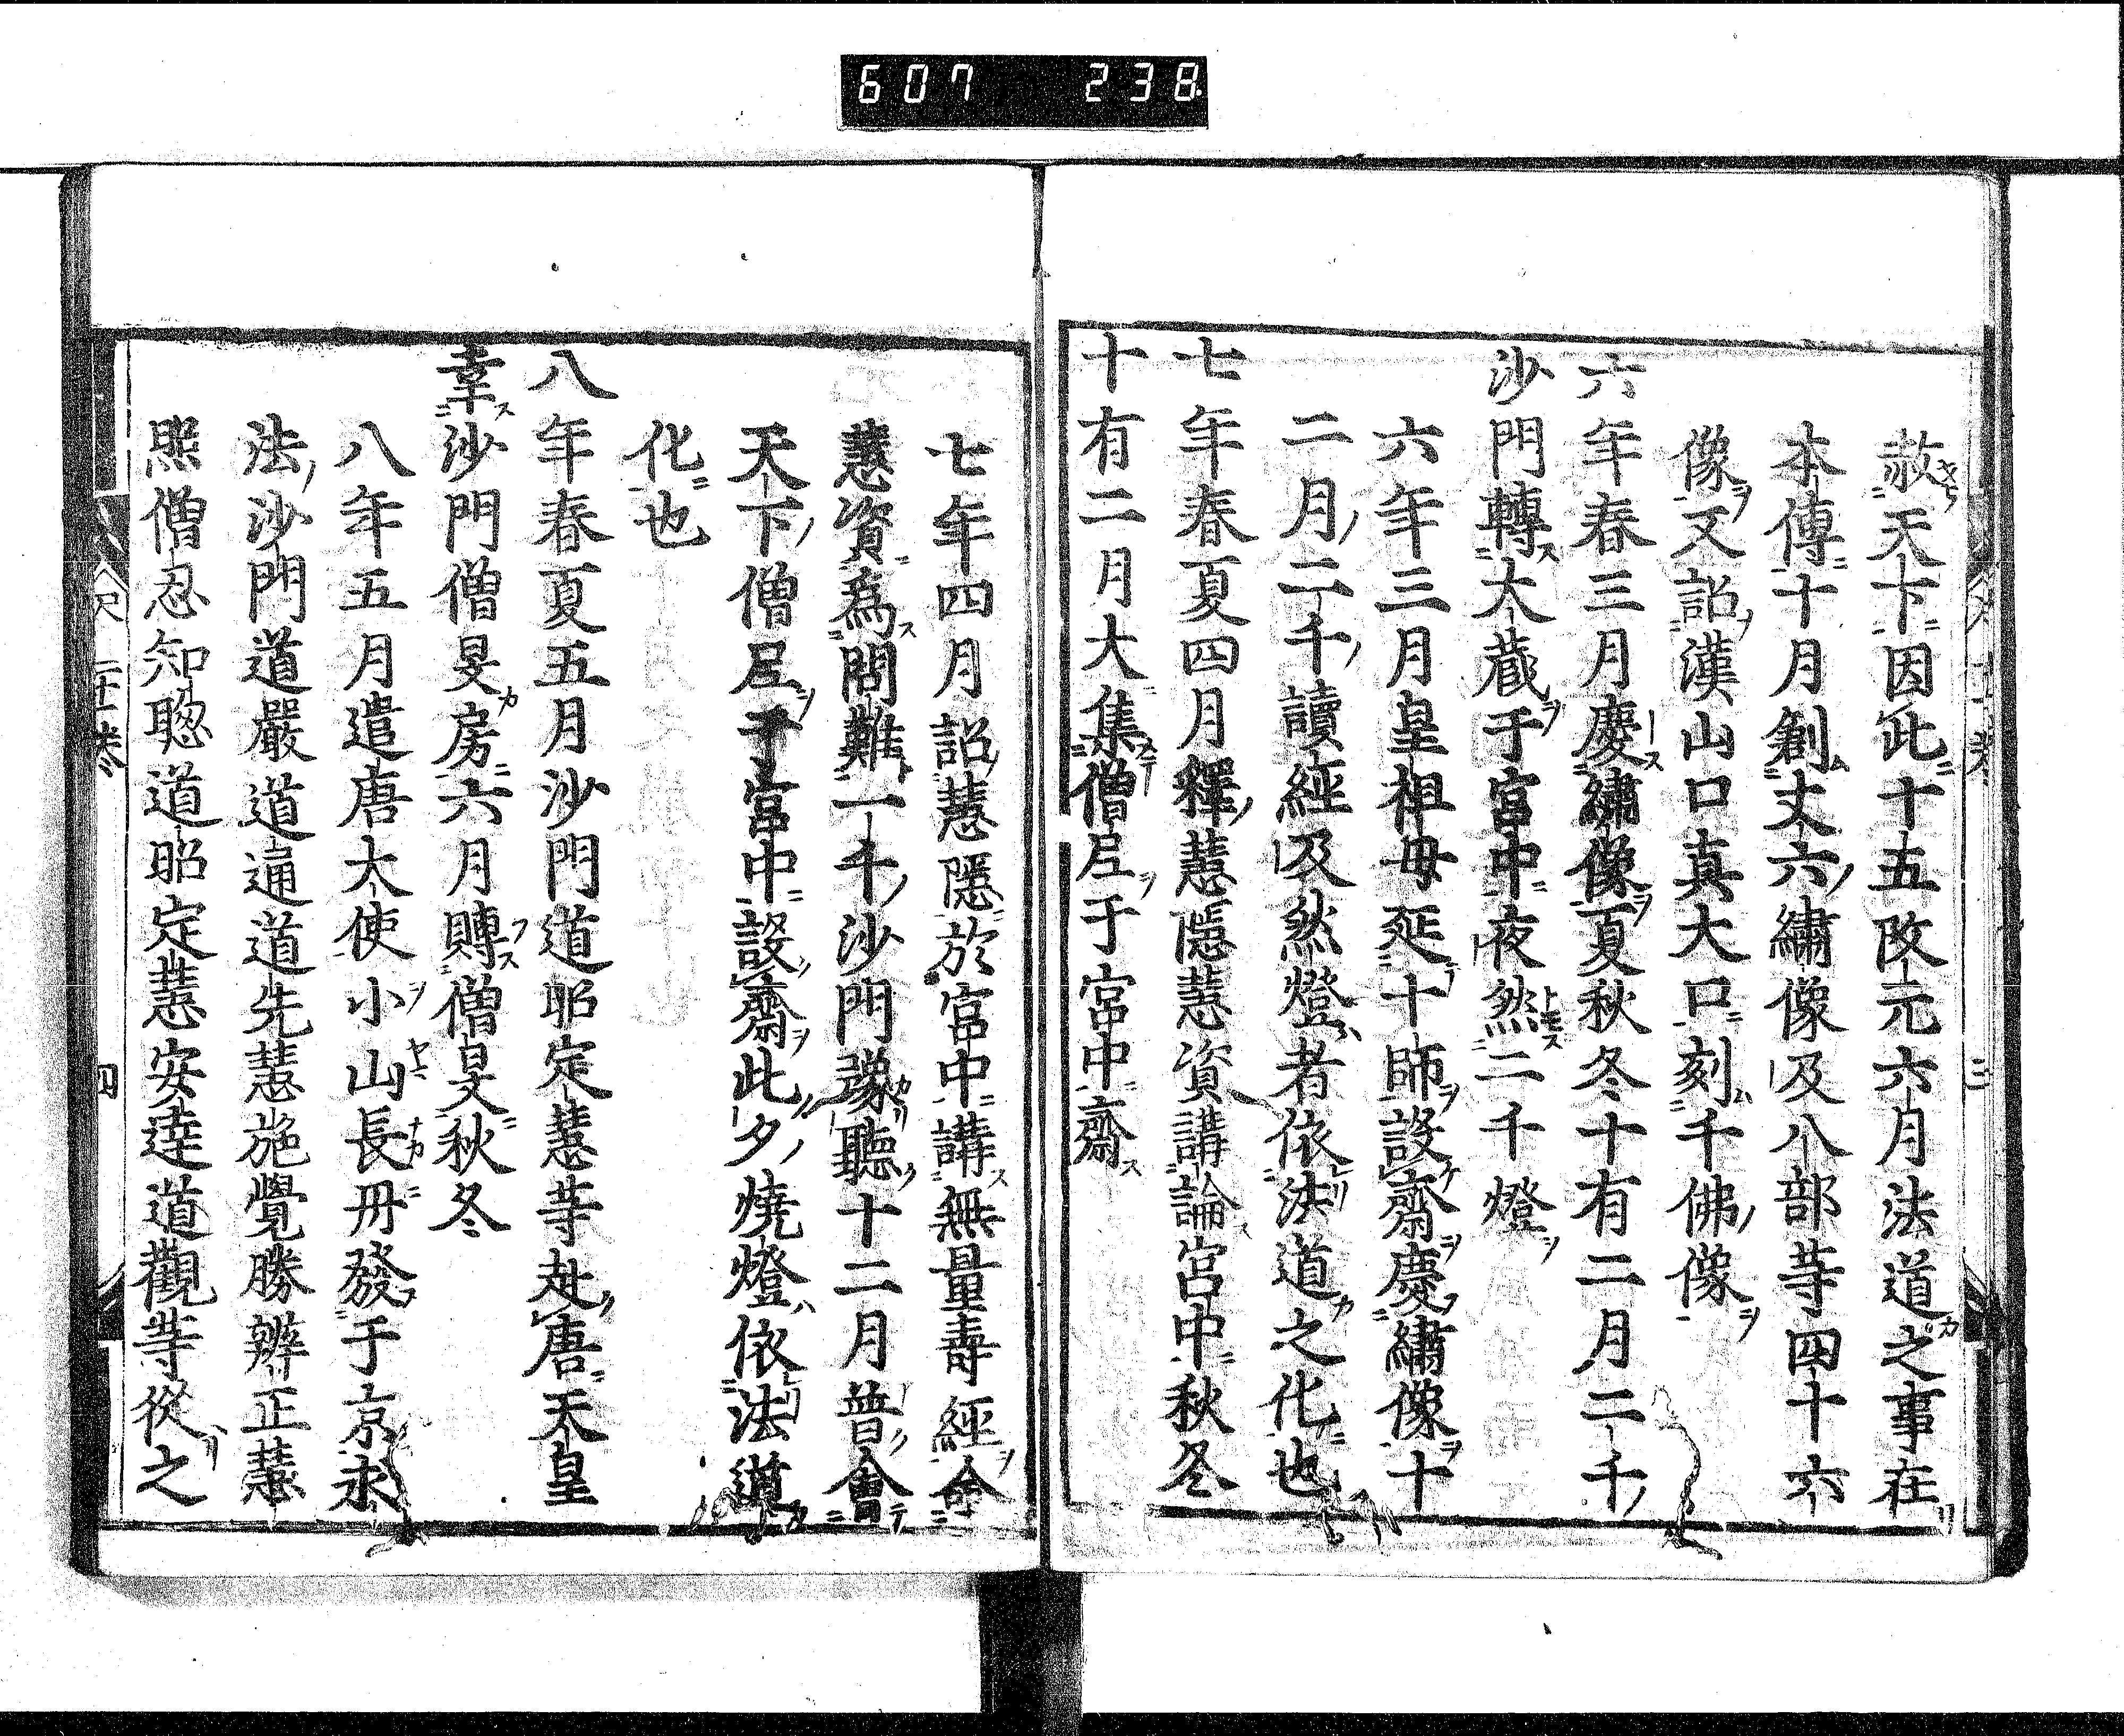 607 238
赦天下因此十五改元六月法道之事在
本傳十月創丈六繡像及八部等四十六
像又詔漢山口真大口刻千佛像
六年春三月慶繡像夏秋冬十有二月二千
沙門轉大藏于宮中夜然二千燈
六年三月皇祖母延十師設齋慶繡像十
二月二千讀經及然燈者依法道之化也
七年春夏四月釋慧隱慧資講論宮中秋冬
十有二月大集僧尼于宮中齋
七年四月詔慧隱於宮中講無量壽經命
慧資爲問難一千沙門豫聽十二月普會
天下僧尼于宮中設齋此夕燒燈依法道
化也
八年春夏五月沙門道昭定慧等赴唐天皇
幸沙門僧旻房六月賻僧旻秋冬
八年五月遣唐大使小山長丹發于京永
法沙門道嚴道通道先慧施覺勝辨正慧
照僧忍知聰道昭定慧安達道觀等從之
二十卷
四